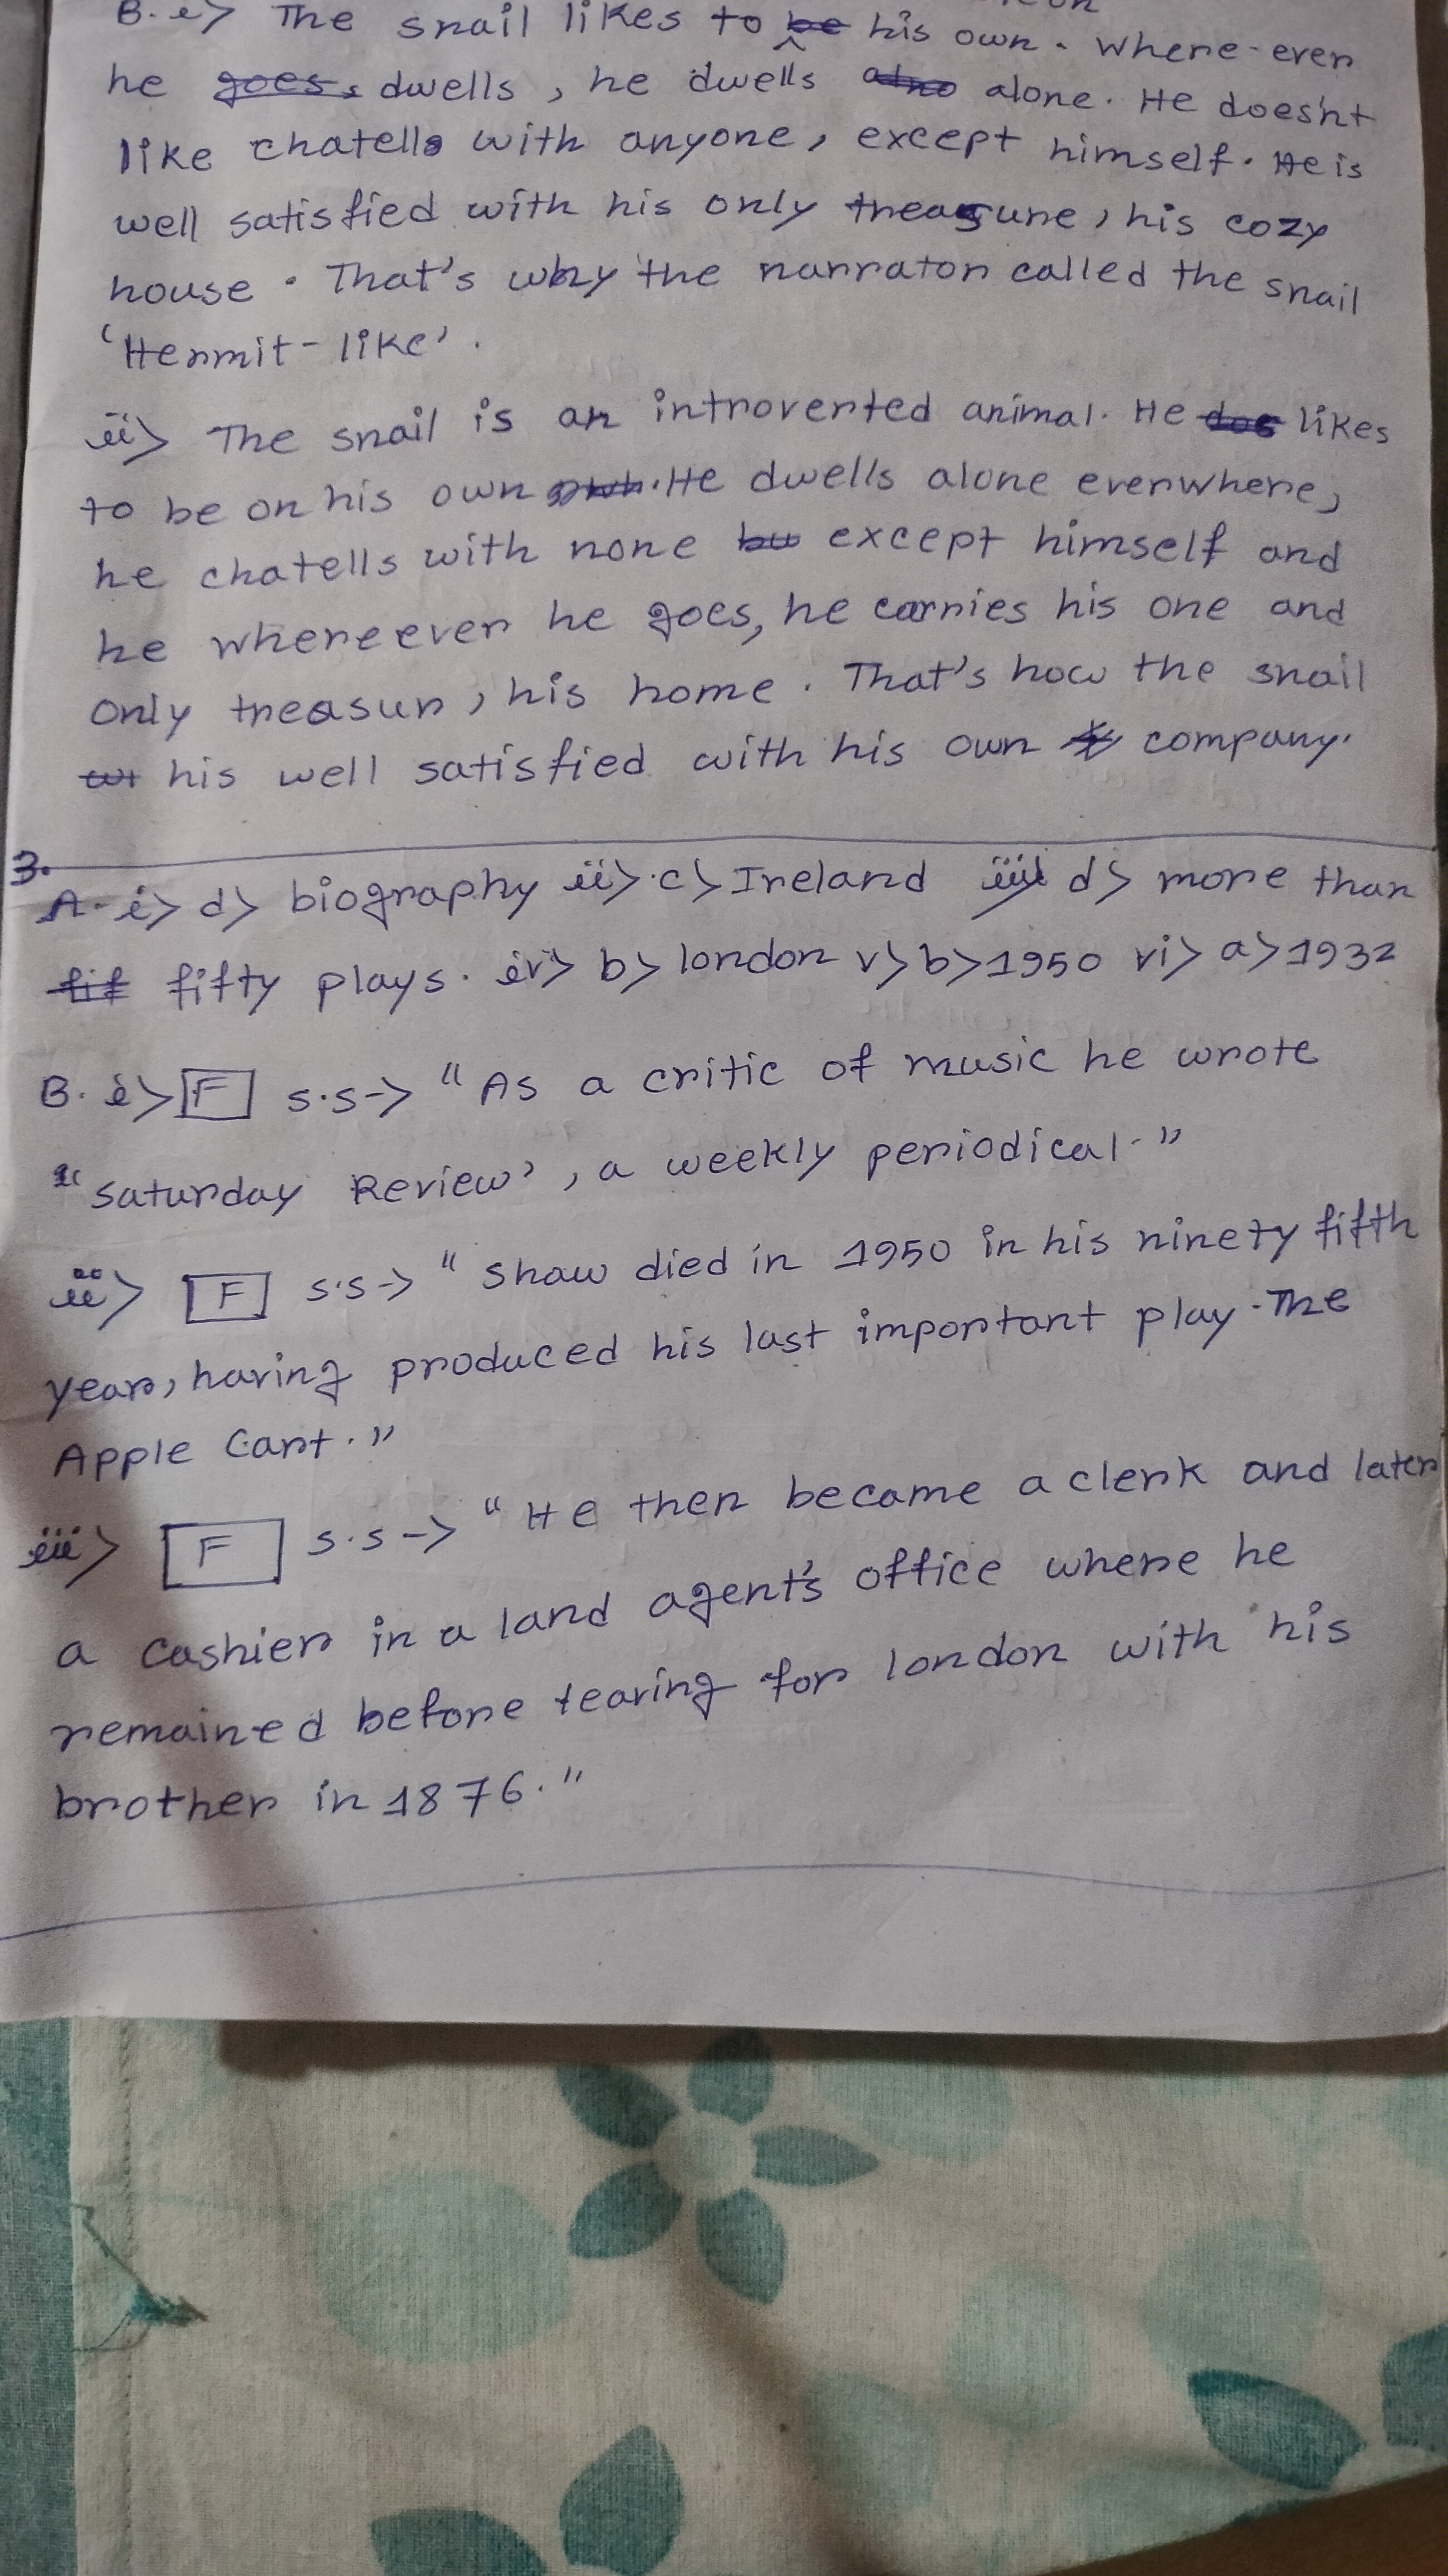 B. i> The snail likes to be his own. Where-ever
he goes, dwells, he dwells also alone. He does'nt
like chatells with anyone, except himself. He is
well satisfied with his only treasure, his cozy
house. That's why the narrator called the snail
'Hermit-like'.
ii> The snail is an introverted animal. He dos likes
to be on his own own. He dwells alone everwhere,
he chatells with none bu except himself and
he whereever he goes, he carries his one and
only treasur, his home. That's how the snail
wi his well satisfied with his own company.
3.
A. i> d> biography ii> c> Ireland iii> d> more than
fif fifty plays. iv> b> london v> b> 1950 vi> a> 1932
B. i> F s.s-> "As a critic of music he wrote
"Saturday Review', a weekly periodical."
ii> F s.s-> "Shaw died in 1950 in his ninety fifth
year, having produced his last important play. The
Apple Cart."
iii> F s.s-> "He then became a clerk and later
a cashier in a land agent's office where he
remained before tearing for london with his
brother in 1876."